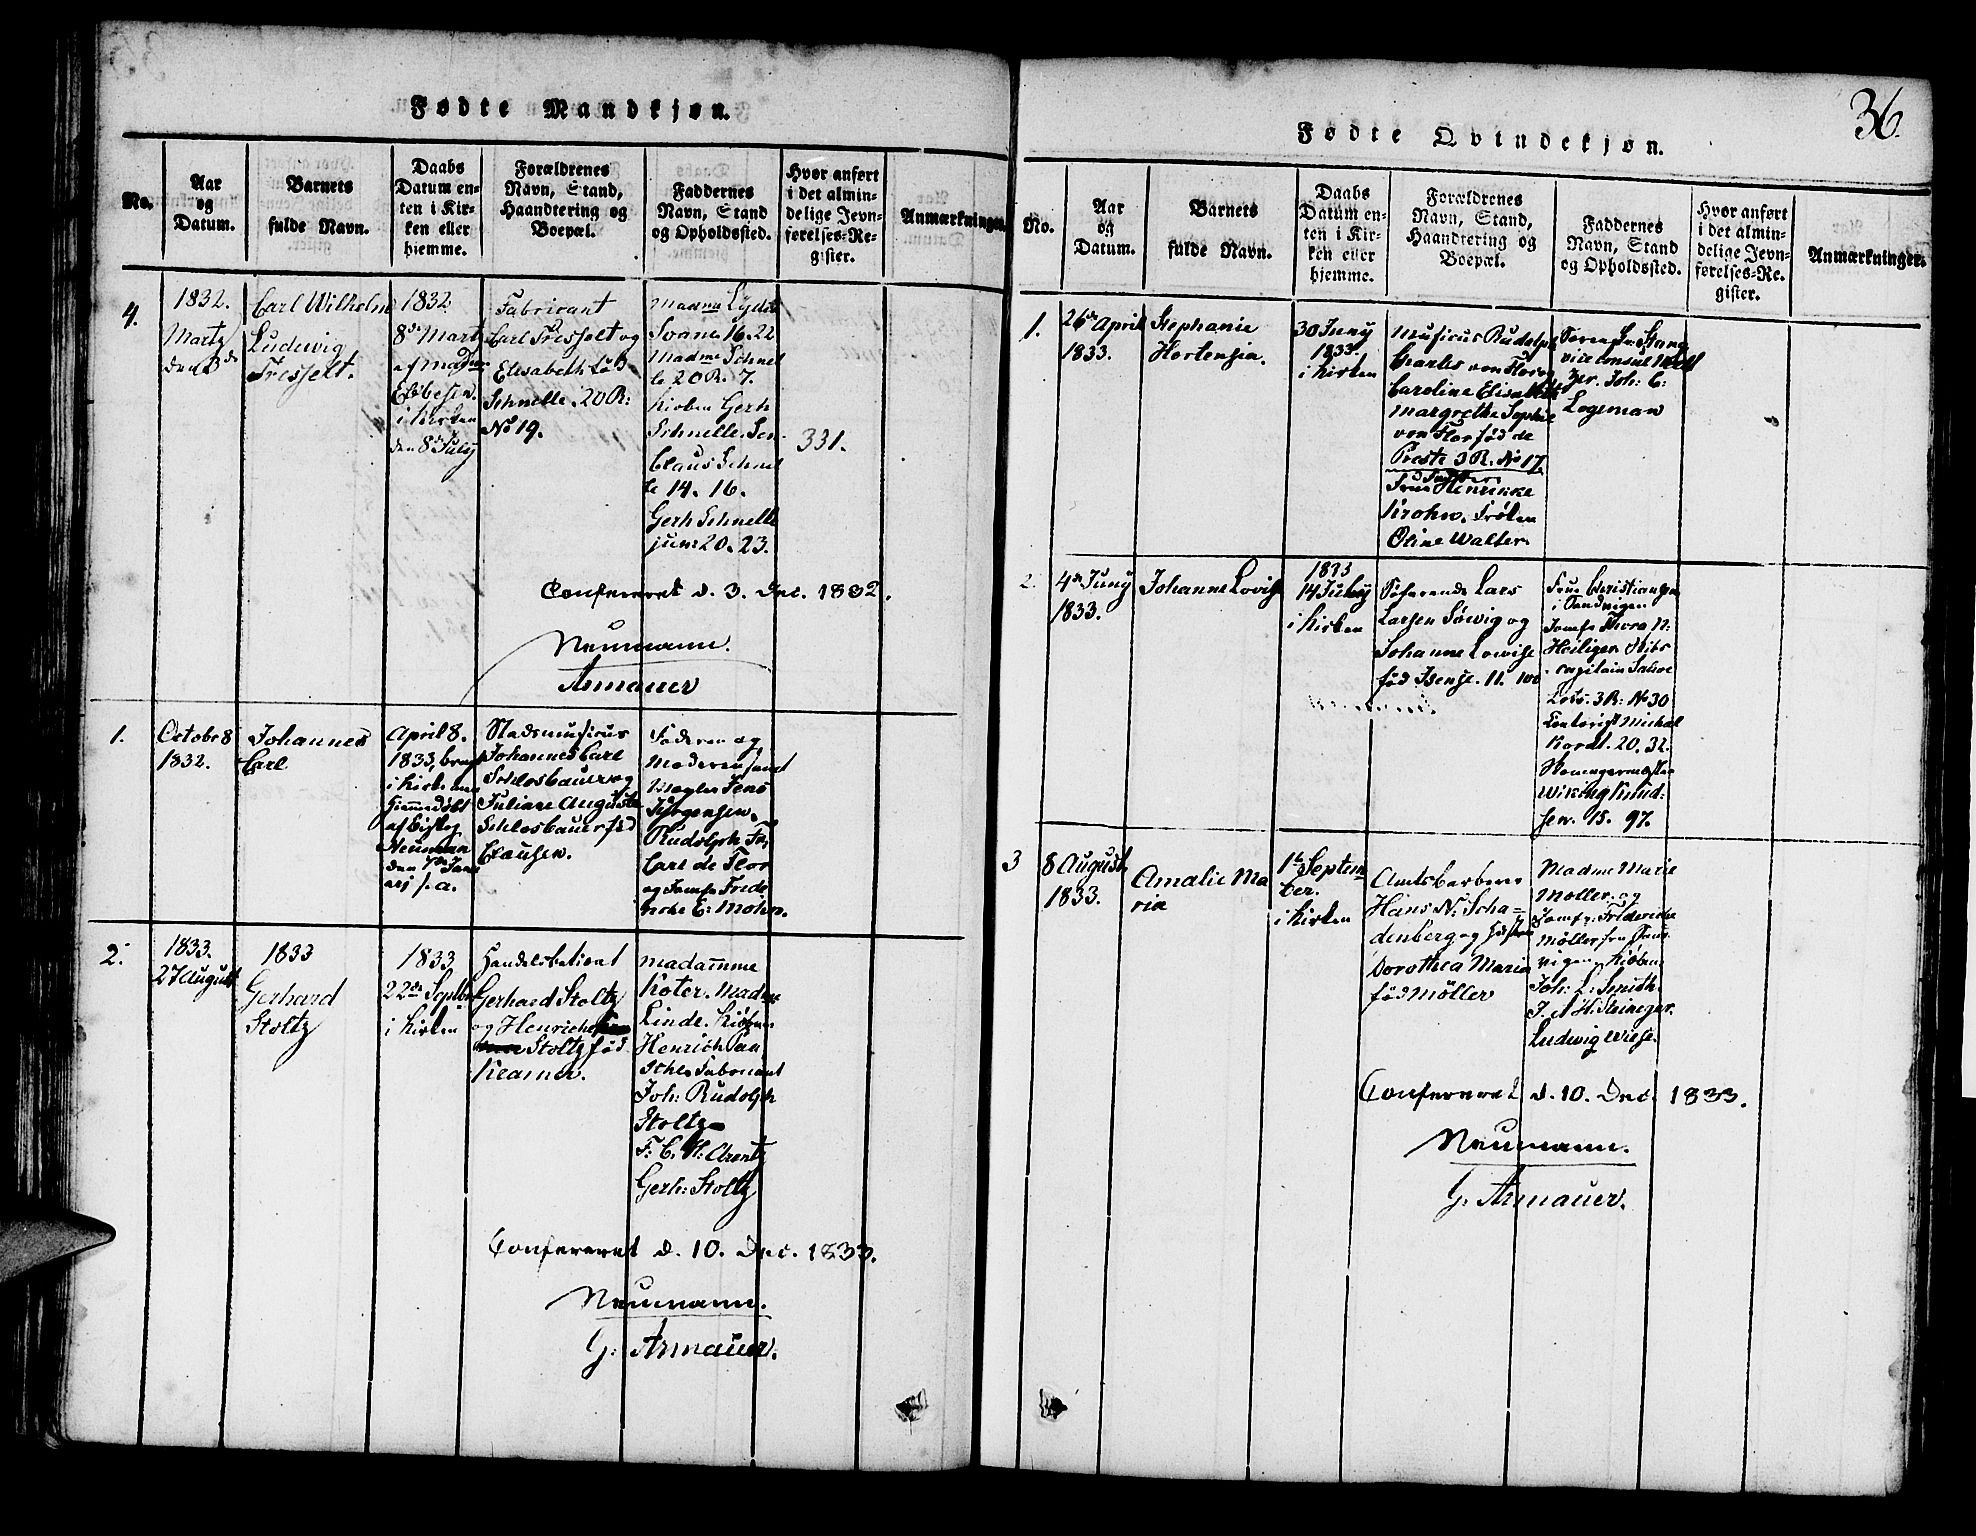 36.
Fødte Mandkjøn.
No.
Aar
og
Datum.
Barnets
fulde Navn.
Daabs
Datum en-
ten i Kir-
ken eller
hjemme.
Forældrenes
Navn, Stand,
Haandtering og
Boepæl.
Faddernes
Navn, Stand
og Opholdssted.
Hvor anført
i det almin-
delige Jevn-
førelses-Re-
gister.
Anmærkninger.
4.
1832.
Martz
den 8de
Carl Wilhelm
Ludewig
Tresselt.
1832
8de Martz
i Kirken
den 8de July
Fabricant
Carl Tresselt og
Elisabeth
Schnelle. 20 R:
No 19.
Madme
Svane 16. 22
Madme Schnel
le 20 R. 7.
Kirken Gerh
Schnelle. Sen.
Claus Schnel
le 14. 16.
Gerh Schnelle
jun: 20. 23.
331.
Confereret d. 3. Dec. 1832.
Neumann.
Armauer
1.
Octobr 8
1832.
Johannes
Carl
April 8.
1833,
i Kirken
Hjemmedøbt
af Biskop
Neumann
den 7de Janu
arj s. a.
Stadsmusicus
Johannes Carl
Schlosbauer og
Juliane Augusta
Schlosbauer fød
Clausen.
Faderen og
Moderen samt
Jens
Jørgensen.
Rudolph
Carl de Flor
og Jomfr Frede
ricke E: Mohn.
2.
1833.
27 August
1833
Gerhard
Stoltz
1833
22de Septbr
i Kirken
Handelsbetient
Gerhard Stoltz
og Henriche
Stoltz fød
Kramer.
Madamme
Koter. Madme
Linde. Kiøbm
Henrich Jan
Fabricant
Joh: Rudolph
Stoltz
F. C. H: Arentz
Gerh: Stoltz
Confereret d. 10. Dec. 1833.
Neumann.
G: Armauer.
Fødte Qvindekjøn.
No.
Aar
og
Datum.
Barnets
fulde Navn.
Daabs
Datum en-
ten i Kir-
ken eller
hjemme.
Forældrenes
Navn, Stand,
Haandtering og
Boepæl.
Faddernes
Navn, Stand
og Opholdssted.
Hvor anført
i det almin-
delige Jevn-
førelses-Re-
gister.
Anmærkninger.
1.
26de April
1833.
Stephanie
Hortensia.
30 Juny
1833.
i Kirken
Musicus Rudolph
Charles von Flor og
Caroline Elisabeth
Margrethe Sophie
von Flor fød de
Preste 3 R. No 17
Fadder
Frue Henrikke
Krohn. Frøken
Oline Walter.
Søren
viceconsul
Joh: C:
Logeman
2.
4de Juny
1833.
Johanne Lovise
1833
14 July
i Kirken
Søfarende Lars
Larsen Søwig og
Johanne Lowise
fød Isense. 11. 100
Frue Christiansen
i Sandvigen
Jomfr Thora N:
Heiliger. Skibs
capitain
Lots. 3 R: No 30
Contorist Michal
Kordt. 20. 32.
sen. 15. 97.
3
8 August
1833.
Amalie Ma
ria
1te Septem
ber.
i Kirken
Amtsbarberer
Hans N: Scha-
denberg og Hustru
Dorothea Maria
fød Møller
Madme Marie
Møller. og
Jomfr: Friderecke
Møller fra Sand
vigen. Kiøbm
Joh: L: Smith
J. A H: Steineger.
Ludwig Wiese.
Confereret d. 10. Dec. 1833.
Neumann.
G: Armauer.